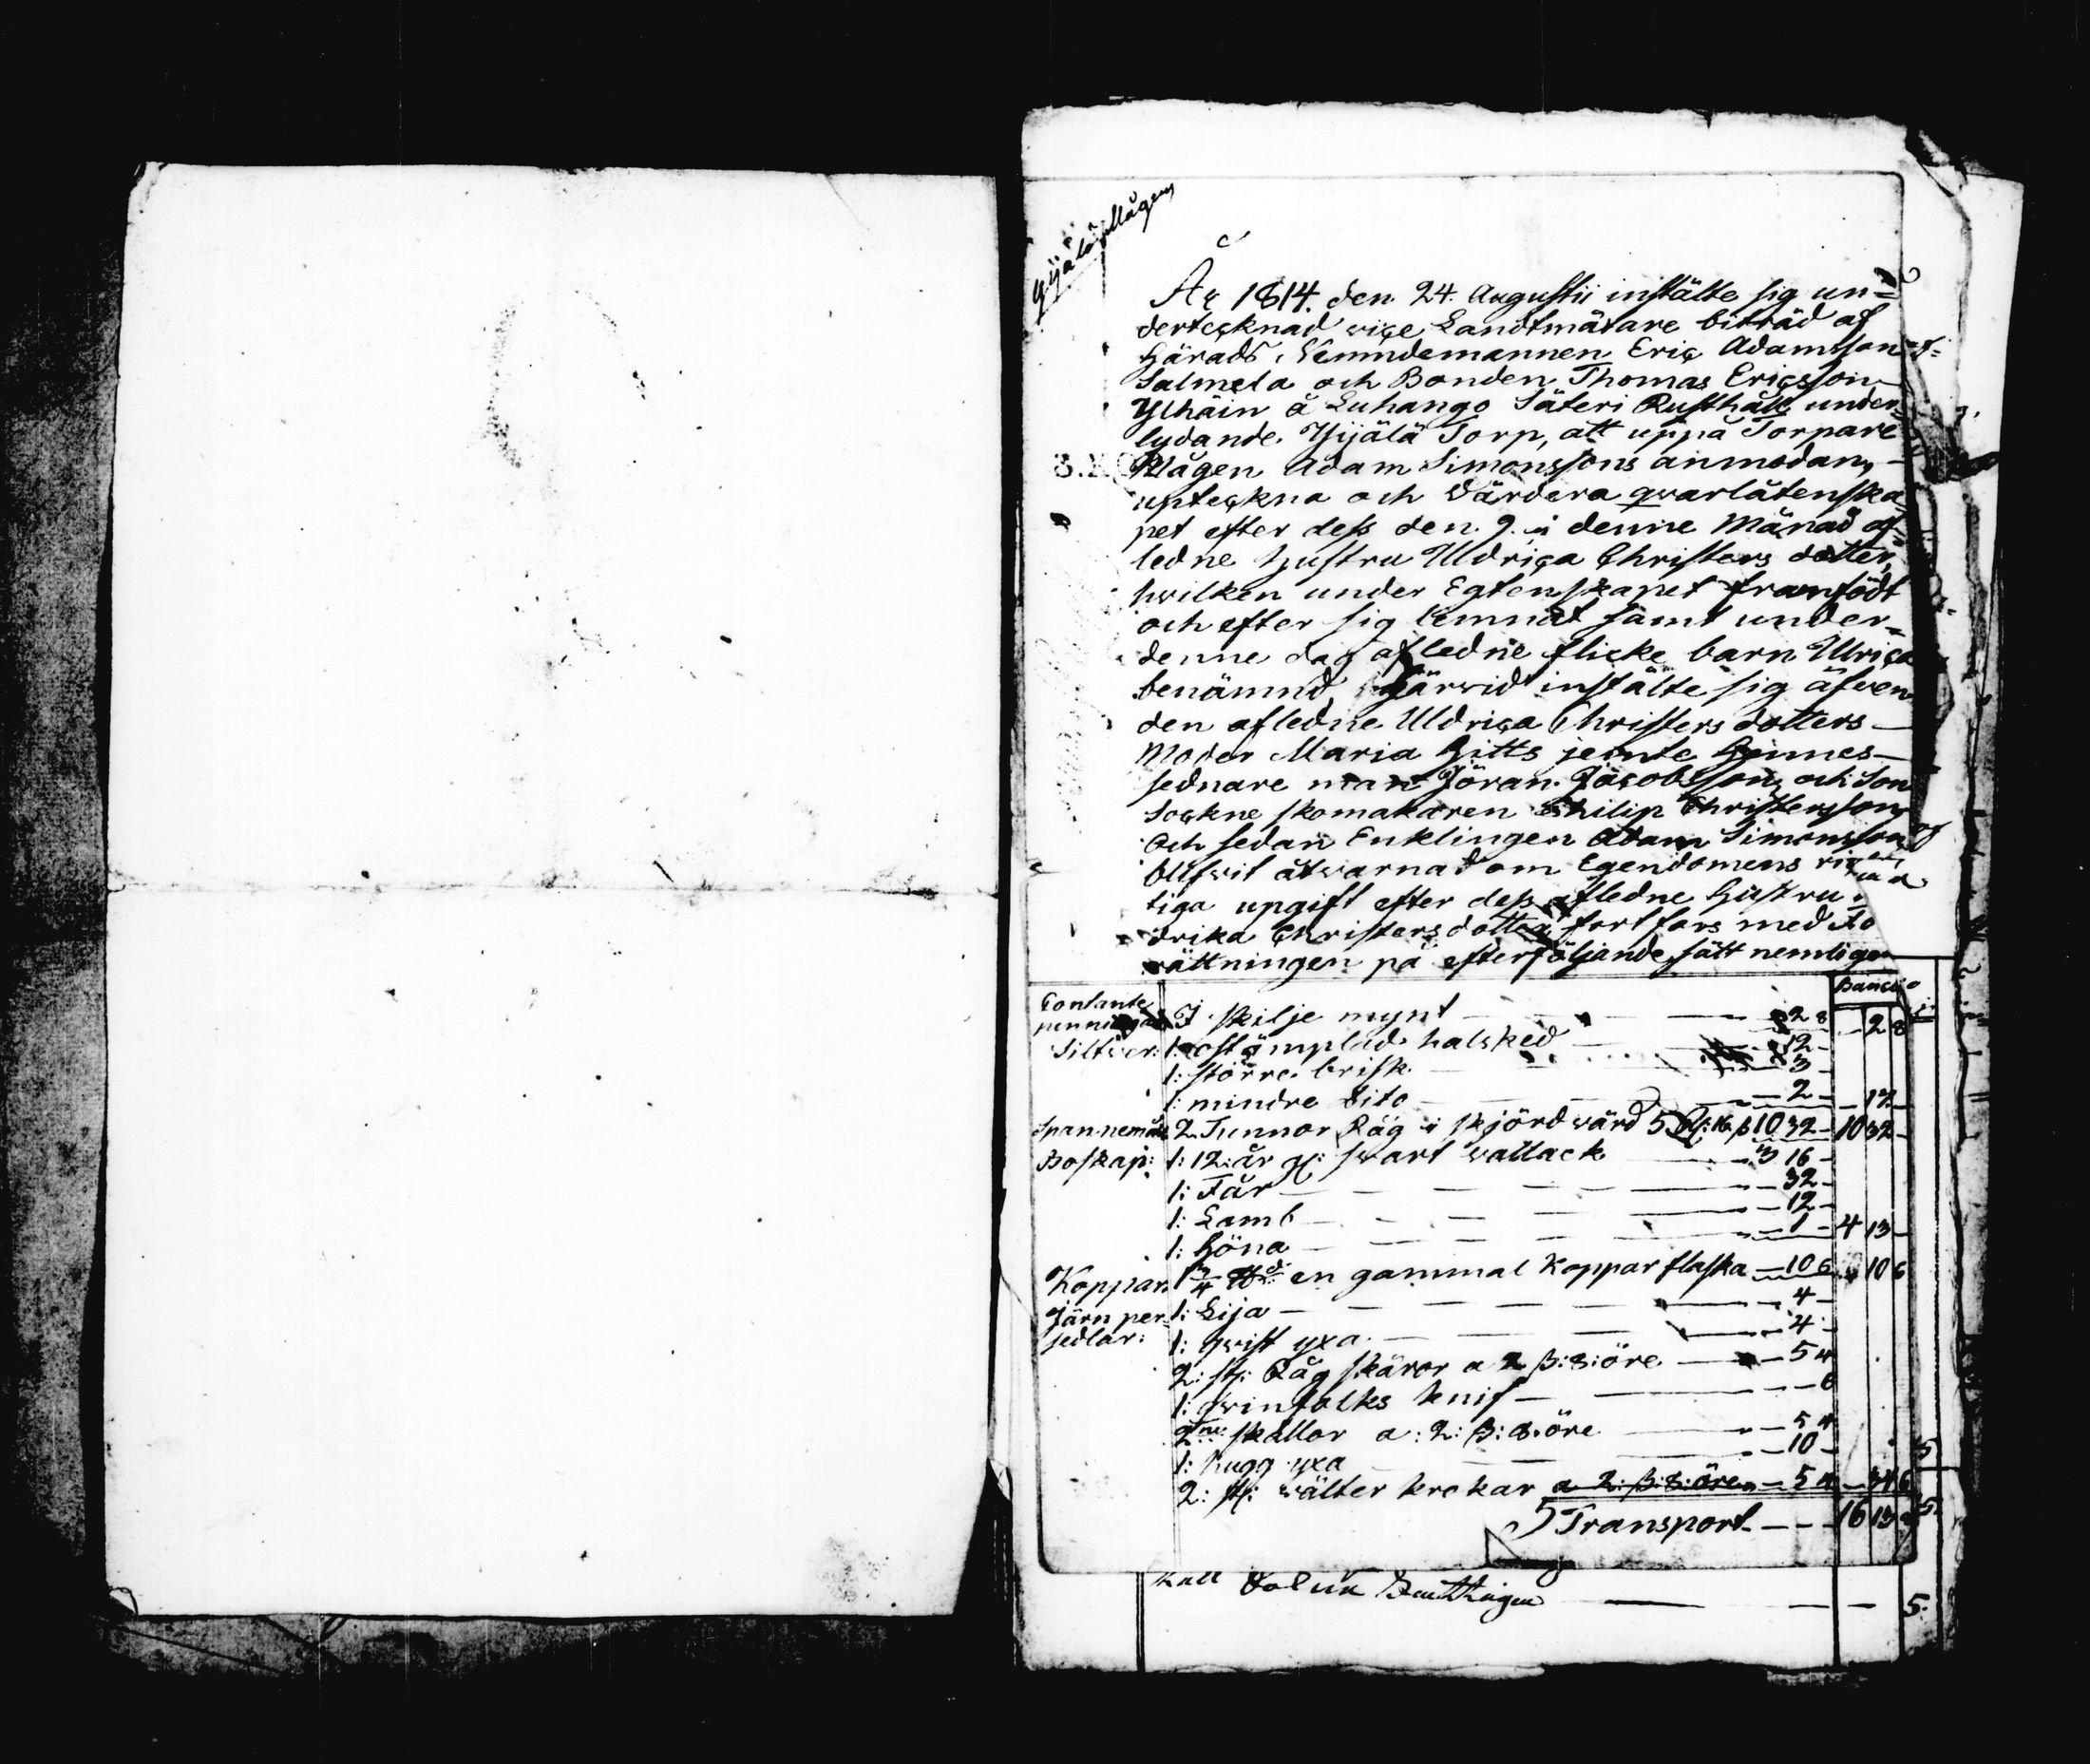 År 1814. den 24. Augustii instälte sig un=
dertecknad vice Landtmätare biträd af
Härads Nemndemannen Eric Adamsson
Salmela och Bonden Thomas Ericsson
Ylhäin å Luhango Säteri Rusthåll under=
lydande Yijälä Torp, att uppå Torpare
Mågen Adam Simonssons anmodan,
upteckna och värdera qvarlåtenska
pet efter dess den 9. i denne Månad af=
ledne hustru Uldrica Christers dotter,
hvilken under Egtenskapet framfödt
och efter sig lemnat samt under=
denne dag afledne flicke barn Ulrica
benämnd, Härvid instälte sig äfven
den afledne Uldrica Christers dotters
Moder Maria Hitts jemte hennes
sednare man Jöran Jacobsson, och Son
Sockne skomakaren Philip Christersson,
Och sedan Enklingen Adam Simonsson
blifvit åtvarnad om Egendomens rig
tiga upgift efter dess afledne Hustru
drika Christersdotter fortfors med fö
rättningen på efterföljande sätt nemligen
Banco
Contante
penningar I skilje mynt — — 2 8 — 2 8
Silfver: 1: ostämplad halsked — 12 —
1: större brisk — 3 —
1: mindre dito — 2 — — 17 —
Spannemål 2 Tunnor Råg i skjörd värd 5 Rd: 16 ß 10 32 — 10 32 —
Boskap: 1: 12 år gl: svart vallack — 3 16 —
1: Får — — 32 —
1: Lamb — — 12 —
1: Höna — — 1 — 4 13 —
Koppar 1 3/4 en gammal Koppar flaska — 10 6 10 6
Järn per= 1: Lija — — 4 —
sedlar: 1: qvist yxa — — 4 —
2: st: Råg skäror a 2 ß: 8: öre — 5 4
1: qvinfolks knif — — 6
2ne skållor a: 2: ß: 8: öre — 5 4
1: hugg yxa — — 10 —
2: st: välter krokar a 2: ß: 8: öre — 5 4 — 34 6
Transport — — 16 13
5